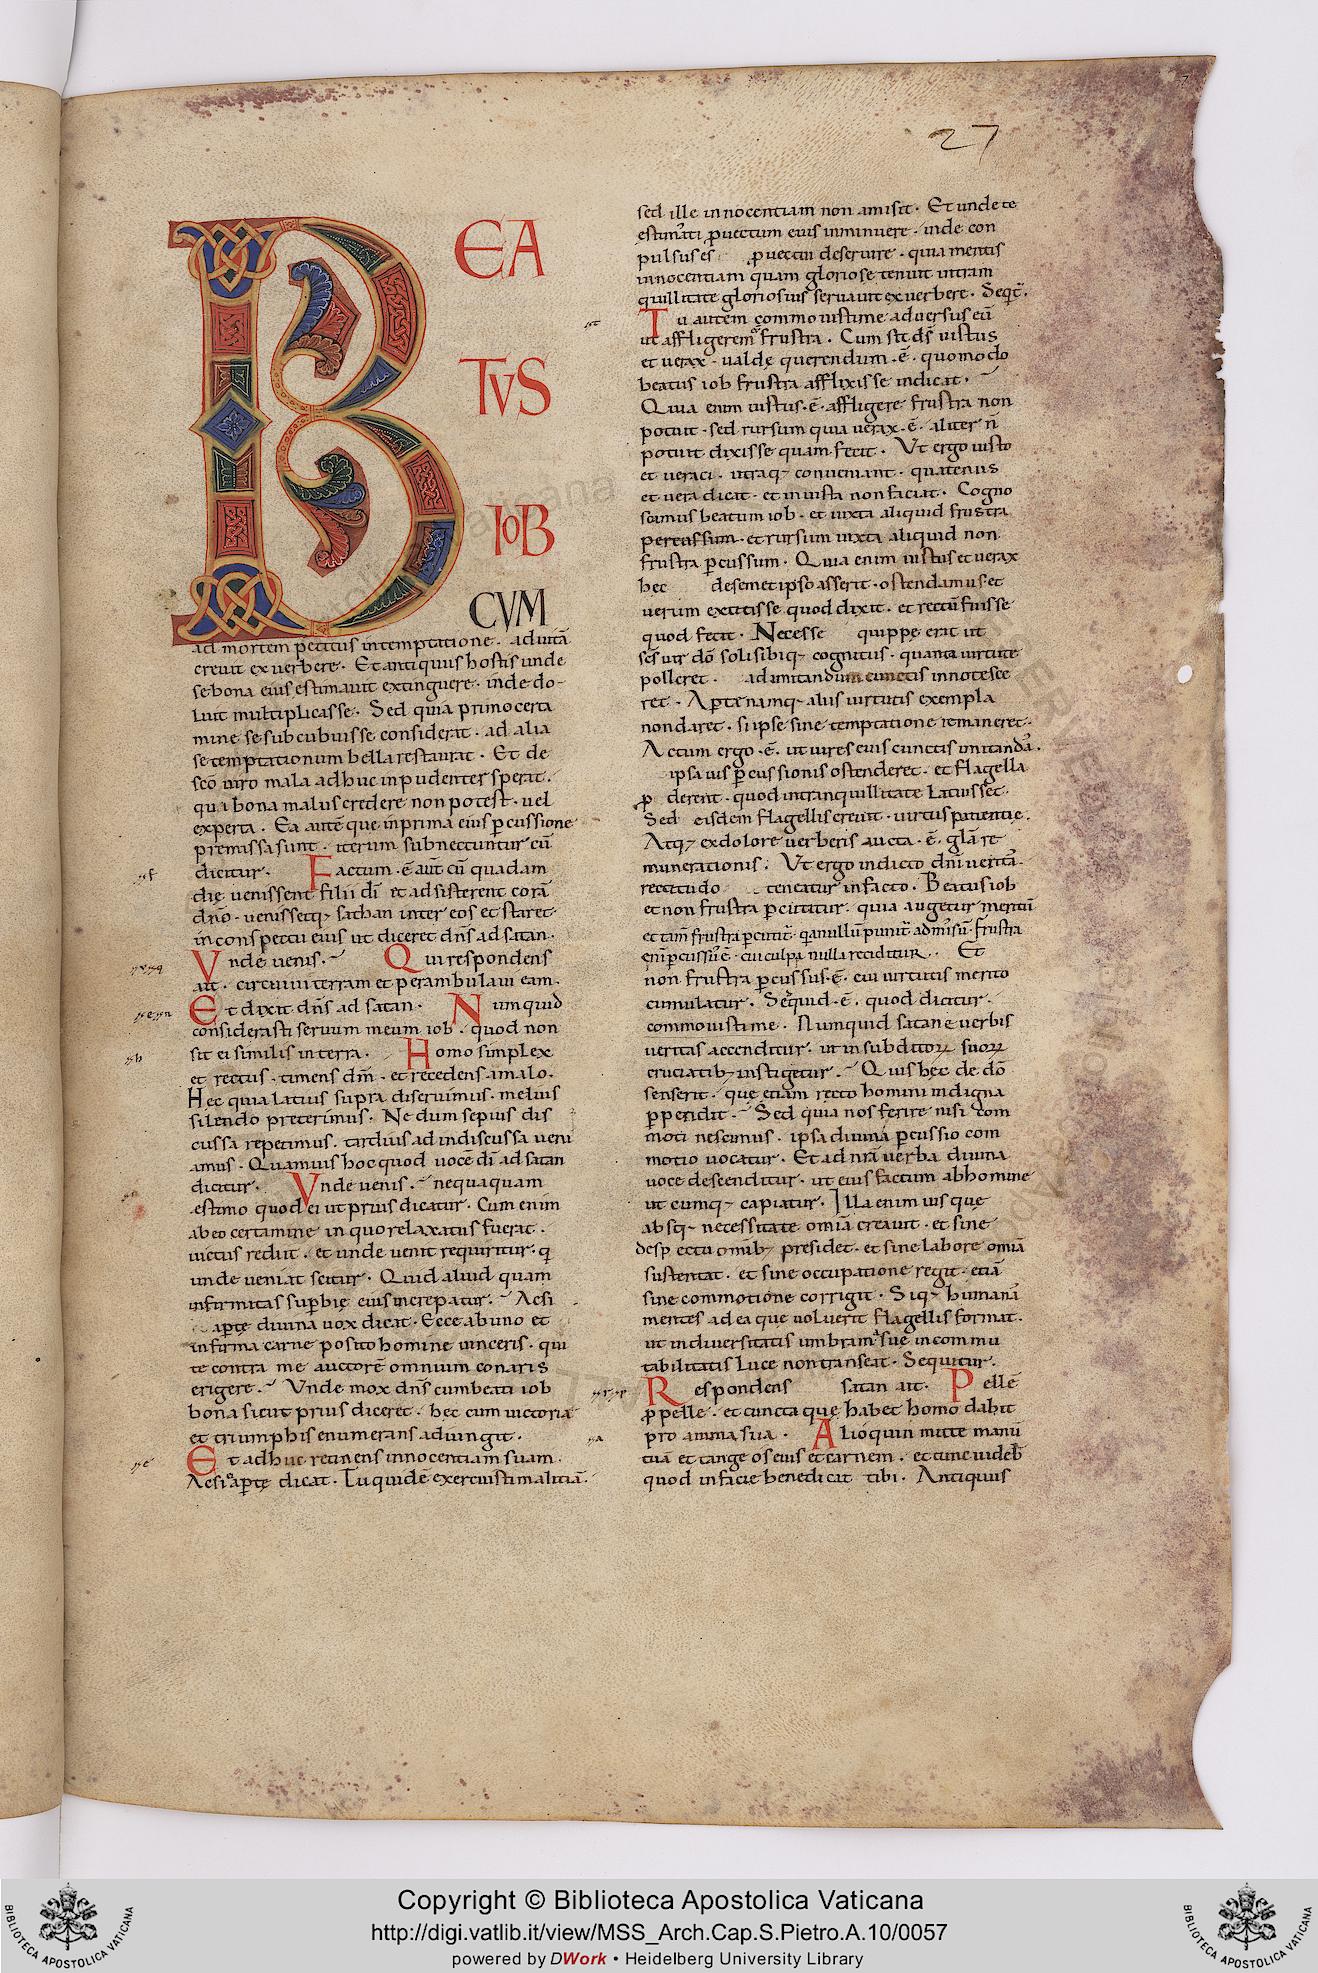 27
BEA
TVS
IOB
CVM
ad mortem petitus in temptatione. ad uitā
creuit ex uerbere. Et antiquus hostis unde
se bona eius estimauit extinguere. inde do-
luit multiplicasse. Sed quia primo certa
mine se subcubuisse considerat. ad alia
se temptationum bella restaurat. Et de
sc̄o uiro mala adhuc inpudenter sperat.
quia bona malus credere non potest. uel
experta. Ea autē que in prima eius ꝑcussione
premissa sunt. iterum subnectuntur cū
dicitur. Factum .ē. aūt cū quadam
die uenissent filii dī et adsisterent corā
dn̄o. uenissetq; sathan inter eos et staret
in conspectu eius ut diceret dn̄s ad satan.
Vnde uenis. Qui respondens
ait. circuiui terram et perambulaui eam.
Et dixit dn̄s ad satan. Numquid
considerasti seruum meum iob. quod non
sit ei similis in terra. Homo simplex
et rectus. timens dm̄. et recedens a malo.
Hec quia latius supra diseruimus. melius
silendo preterimus. Ne dum sepius dis
cussa repetimus. tardius ad indiscussa ueni
amus. Quamuis hoc quod uocē dī ad satan
dicitur. Vnde uenis. nequaquam
estimo quod ei ut prius dicatur. Cum enim
ab eo certamine in quo relaxatus fuerat.
uictus rediit. et unde uenit requiritur. q
unde ueniat scitur. Quid aliud quam
infirmitas suꝑbię eius increpatur. Acsi
aꝑtę diuina uox dicat. Ecce ab uno et
infirma carne posito homine uinceris. qui
te contra me auctorē omnium conaris
erigere. Vnde mox dn̄s cum beati iob
bona sicut prius diceret. hec cum uictoria
et triumphis enumerans adiungit.
Et adhuc retinens innocentiam suam.
Acsi aꝑtę dicat. Tu quidē exercuisti malitiā.
sed ille innocentiam non amisit. Et unde te
estimasti ꝓuectum eius inminuere. inde con
pulsus es ꝓuectui deseruire. quia mentis
innocentiam quam gloriose tenuit in tran
quillitate gloriosius seruauit ex uerbere. Seqt̄.
Tu autem commouisti me aduersus eū
ut affligerem frustra. Cum sit ds̄ iustus
et uerax. ualde querendum .ē. quomodo
beatus iob frustra afflixisse indicat.
Quia enim iustus .ē. affligere frustra non
potuit. sed rursum quia uerax .ē. aliter n̄
potuit dixisse quam fecit. Vt ergo iusto
et ueraci. utraq; conueniant. quatenus
et uera dicat. et iniusta non faciat. Cogno
scimus beatum iob. et iuxta aliquid frustra
percussum. et rursum iuxta aliquid non
frustra ꝑcussum. Quia enim iustus et uerax
hec de semet ipso asserit. ostendamus et
uerum extitisse quod dixit. et rectū fuisse
quod fecit. Necesse quippe erat ut
sc̄s uir dō soli sibiq; cognitus. quanta uirtute
polleret. ad imitandum cunctis innotesce
ret. Aꝑte namq; aliis uirtutis exempla
non daret. si ipse sine temptatione remaneret.
Actum ergo .ē. ut uires eius cunctis imitandā.
ipsa uis ꝑcussionis ostenderet. et flagella
ꝓderent. quod in tranquillitate latuisset.
Sed eisdem flagellis creuit. uirtus patientie.
Atq; ex dolore uerberis aucta .ē. glā re
munerationis. Vt ergo in dicto dnī ueritas.
rectitudo teneatur in facto. Beatus iob
et non frustra ꝑcutitur. quia augetur meritū
et tam̄ frustra ꝑcutit̄. q̄ a nullū punit̄ admīsū. frustra
enī ꝑcussus ē. cui culpa nulla reciditur. Et
non frustra ꝑcussus .ē. cui uirtutis merito
cumulatur. Sed quid .ē. quod dicitur.
commouisti me. Numquid satane uerbis
ueritas accenditur. ut in subditoꝝ suoꝝ
cruciatib; instigetur. Quis hec de dō
senserit. que etiam recto homini indigna
ꝑpendit. Sed quia nos ferire nisi com
moti nescimus. ipsa diuina ꝑcussio com
motio uocatur. Et ad nrā uerba diuina
uoce descenditur. ut eius factum ab homine
ut cumq; capiatur. Illa enim uis que
absq; necessitate omiā creauit. et sine
despectu omib; presidet. et sine labore omiā
sustentat. et sine occupatione regit. etiā
sine commotione corrigit. Siq; humanā
mentes ad ea que uoluerit flagellis format.
ut in diuersitatis umbram sue incommu
tabilitatis luce non transeat. Sequitur.
Respondens satan ait. Pellē
ꝓ pelle. et cuncta quę habet homo dabit
pro anima sua. Alioquin mitte manū
tuā et tange os eius et carnem. et tunc uideb̄
quod in facie benedicat tibi. Antiquus
Copyright © Biblioteca Apostolica Vaticana
http://digi.vatlib.it/view/MSS_Arch.Cap.S.Pietro.A.10/0057
powered by DWork • Heidelberg University Library
BIBLIOTECA APOSTOLICA VATICANA
BIBLIOTECA APOSTOLICA VATICANA